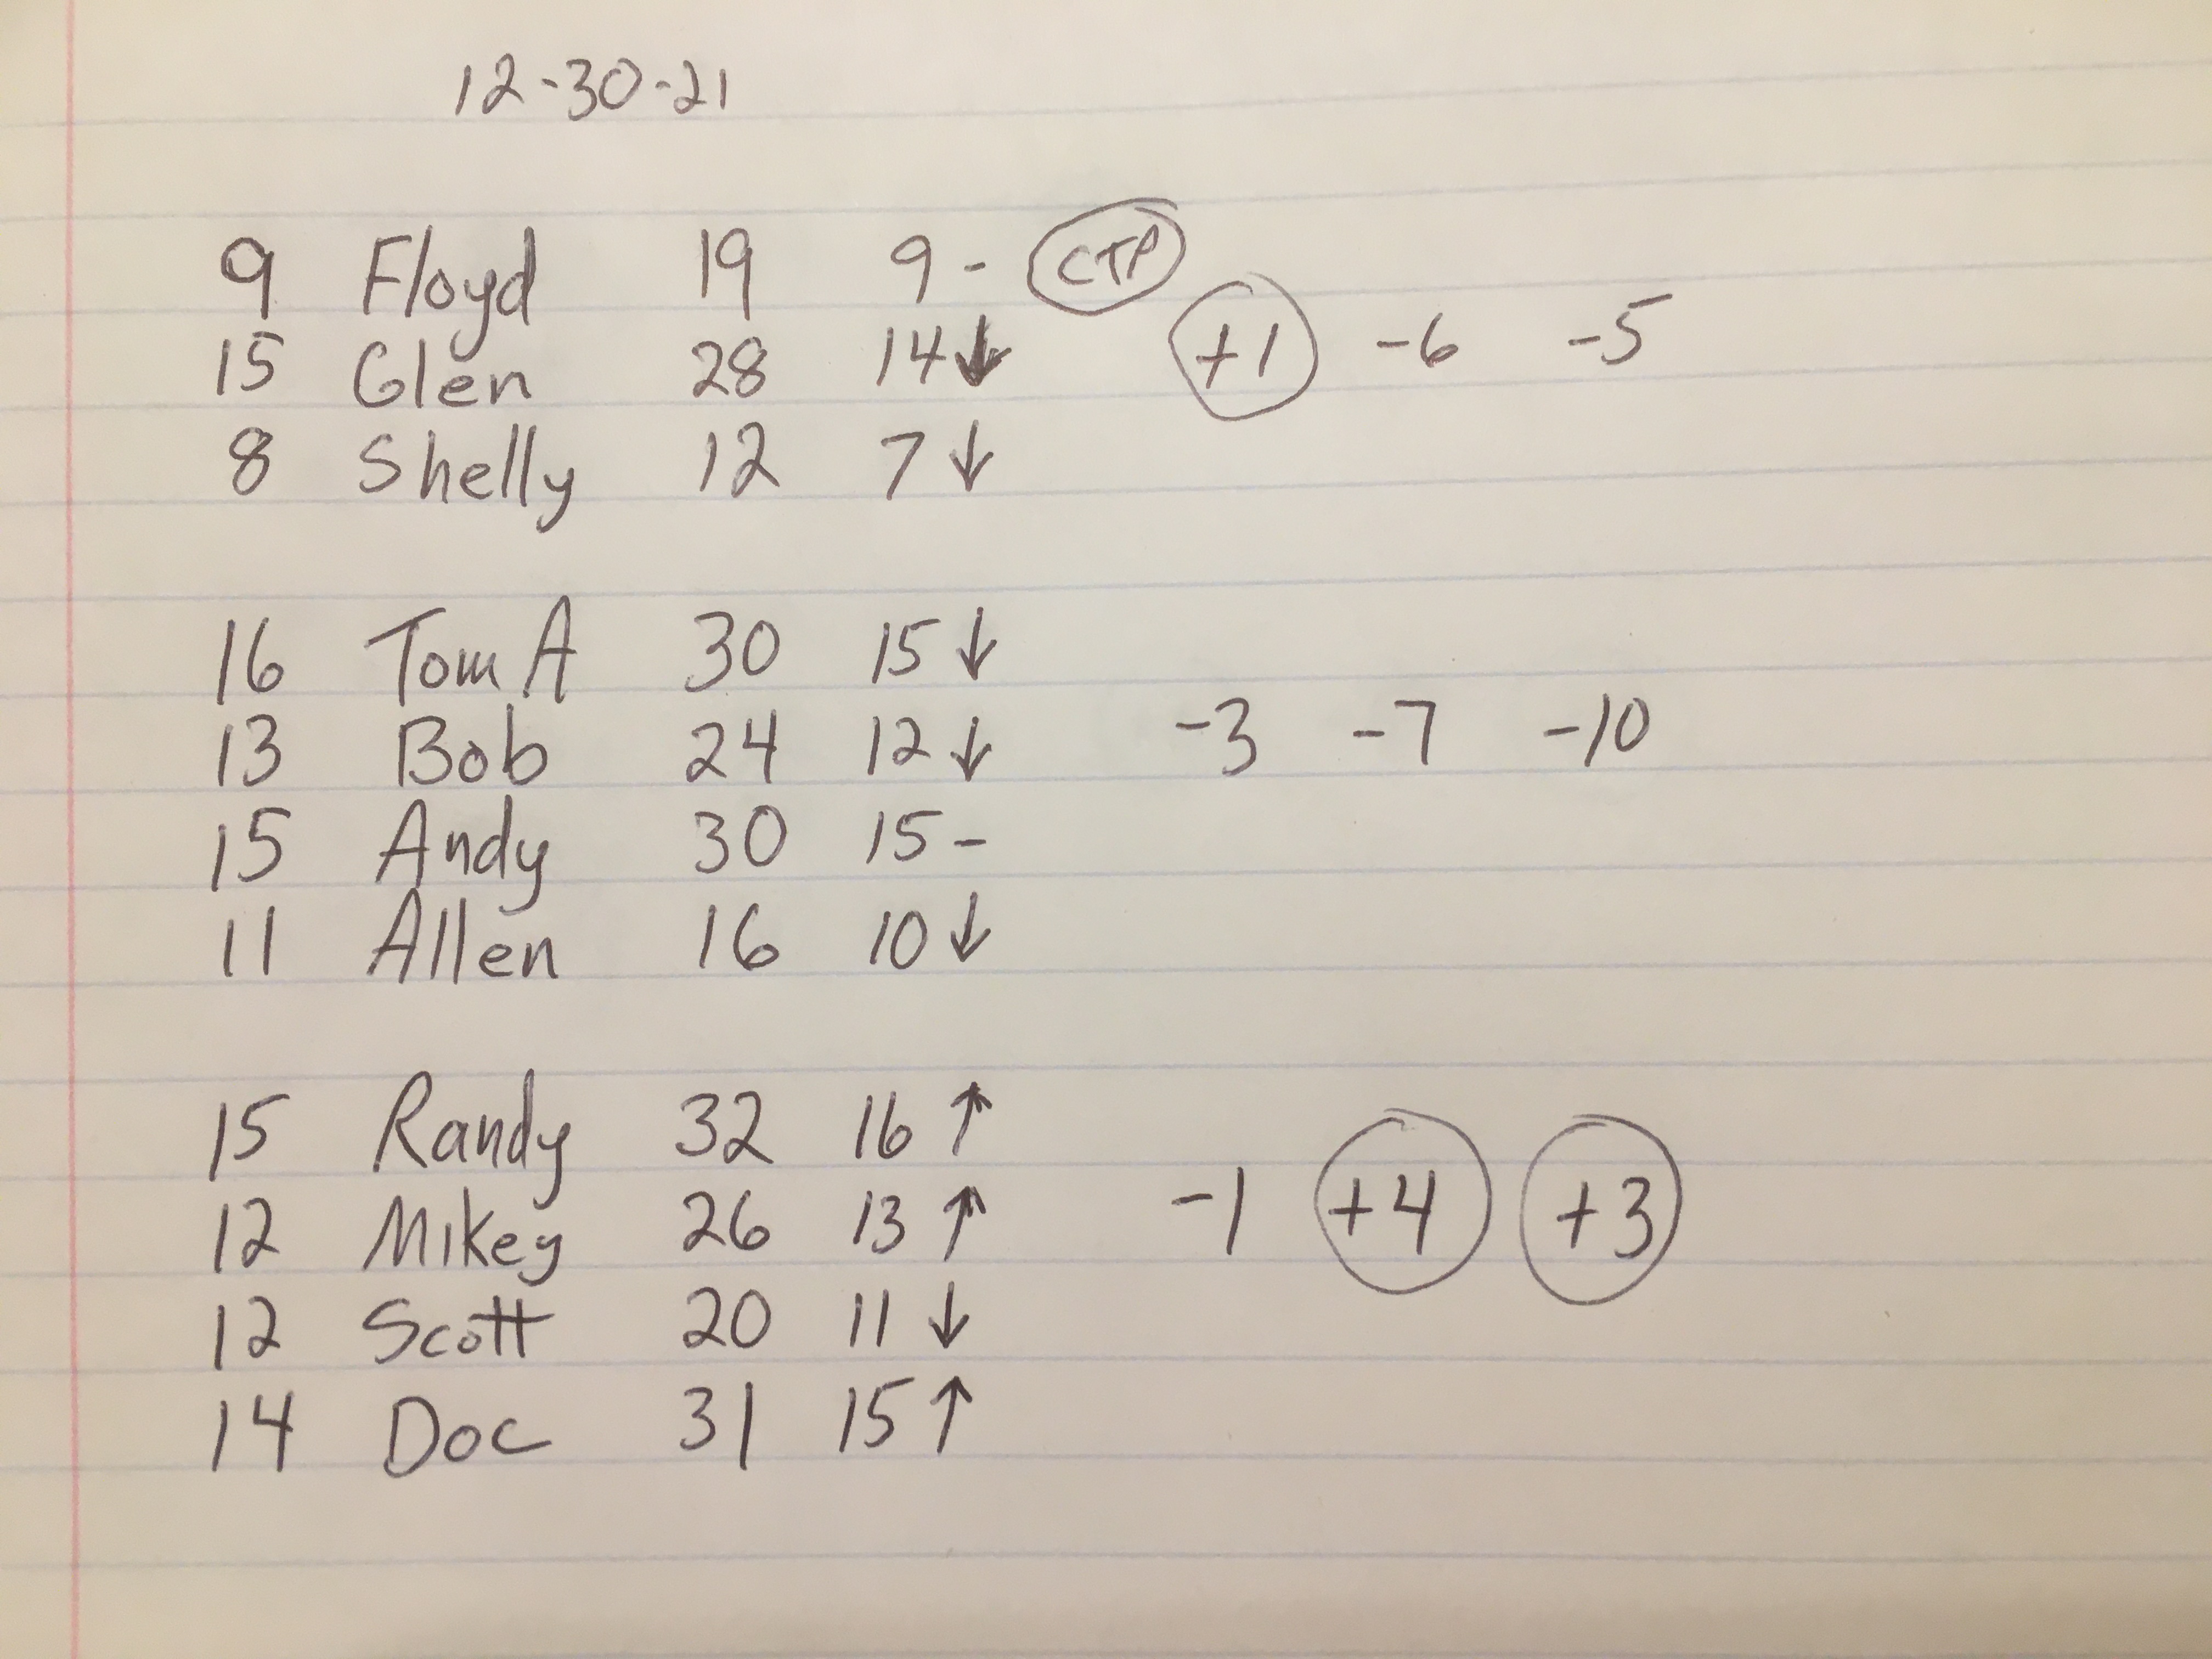 12-30-21
9 Floyd 19 9 - CTP
15 Glen 28 14 ↓ +1 -6 -5
8 Shelly 12 7 ↓
16 Tom A 30 15 ↓
13 Bob 24 12 ↓ -3 -7 -10
15 Andy 30 15 -
11 Allen 16 10 ↓
15 Randy 32 16 ↑
12 Mikey 26 13 ↑ -1 +4 +3
12 Scott 20 11 ↓
14 Doc 31 15 ↑